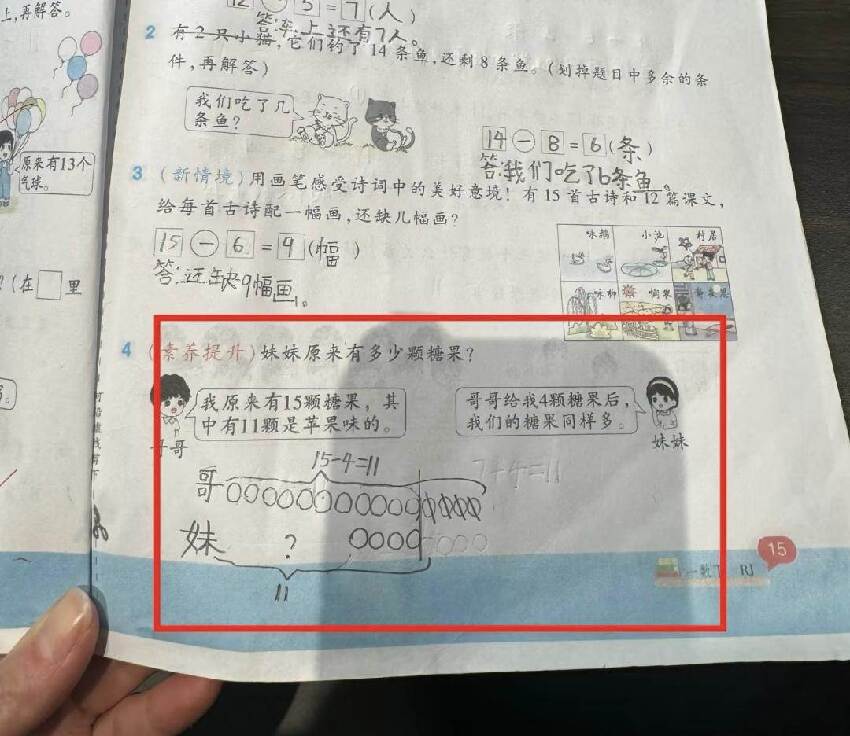 上,再解答。
12 ○ 5 = 7 (人)
答:车上还有7人。
2 有2只小猫,它们钓了14条鱼,还剩8条鱼。(划掉题目中多余的条
件,再解答)
我们吃了几
条鱼?
14 - 8 = 6 (条)
答:我们吃了6条鱼。
原来有13个
气球。
3 (新情境)用画笔感受诗词中的美好意境!有15首古诗和12篇课文,
给每首古诗配一幅画,还缺几幅画?
15 - 6 = 9 (幅)
答:还缺9幅画。
咏鹅 小池 村居
咏柳
?(在□里
4 (素养提升)妹妹原来有多少颗糖果?
我原来有15颗糖果,其
中有11颗是苹果味的。
哥哥
哥哥给我4颗糖果后,
我们的糖果同样多。
妹妹
15-4=11
7+4=11
哥
妹 ?
11
15
一数下 RJ